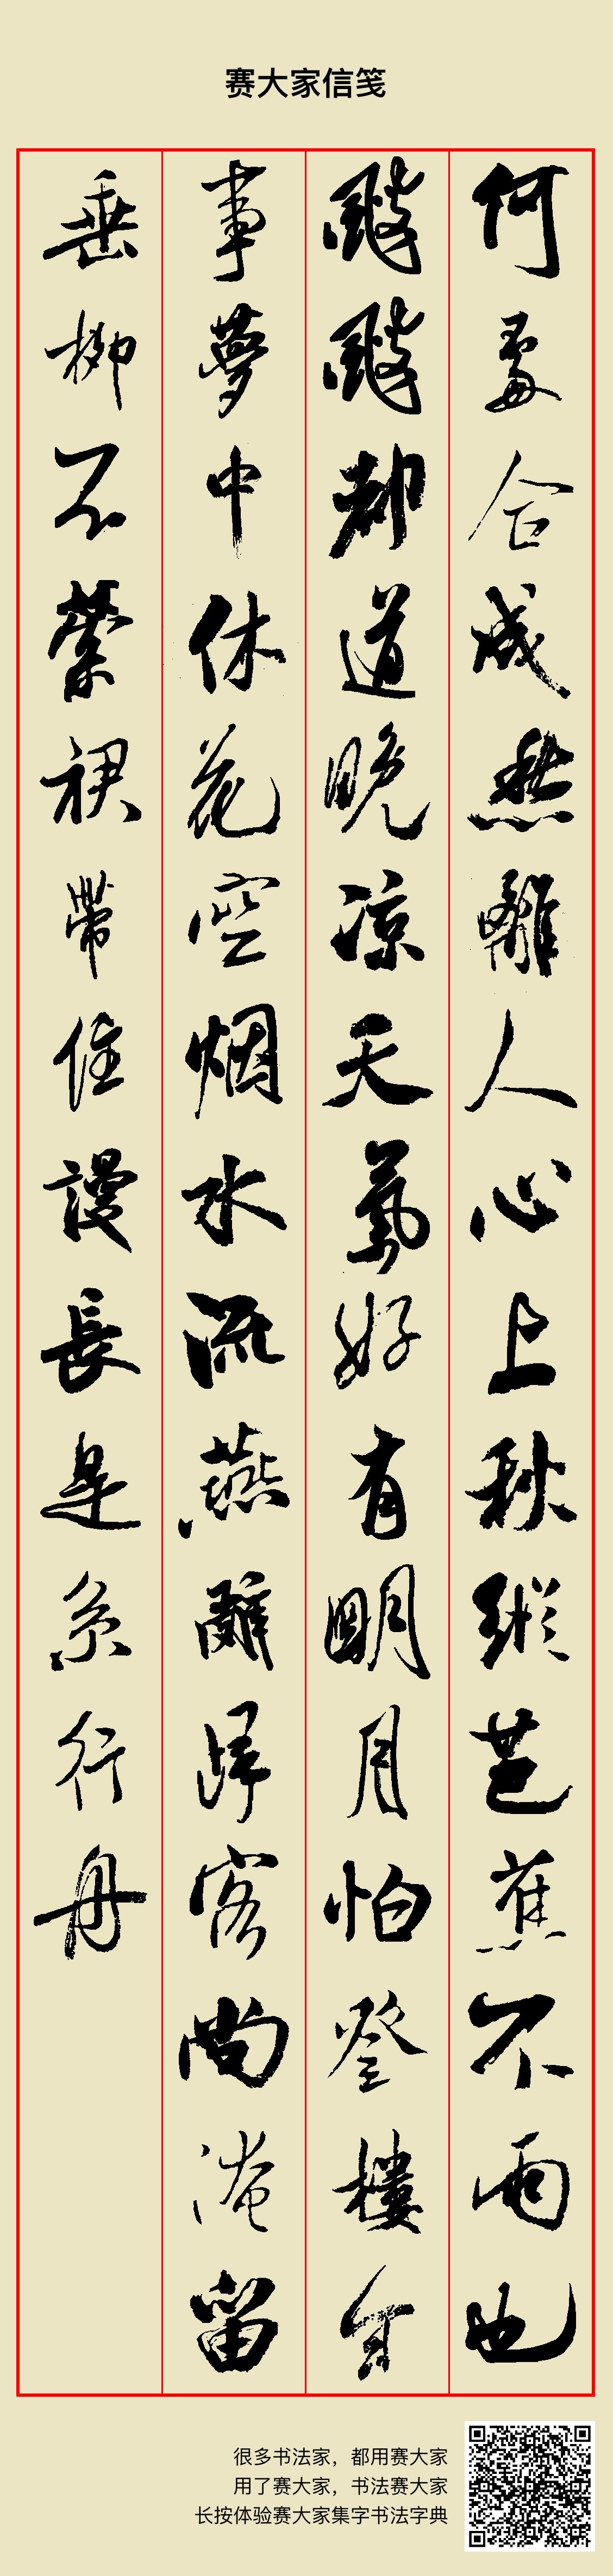 赛大家信笺
何處合成愁離人心上秋縱芭蕉不雨也
颼颼都道晚凉天氣好有明月怕登樓年
事夢中休花空烟水流燕辭歸客尚淹留
垂柳不縈裙帶住謾長是系行舟
很多书法家，都用赛大家
用了赛大家，书法赛大家
长按体验赛大家集字书法字典